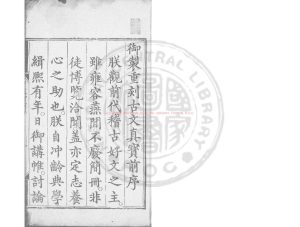 御製重刻古文真寶前序
朕觀前代稽古好文之主
雖雍容燕閒不廢簡冊非
徒博覽洽聞蓋亦定志養
心之助也朕自冲齡典學
緝熙有年日御講帷討論